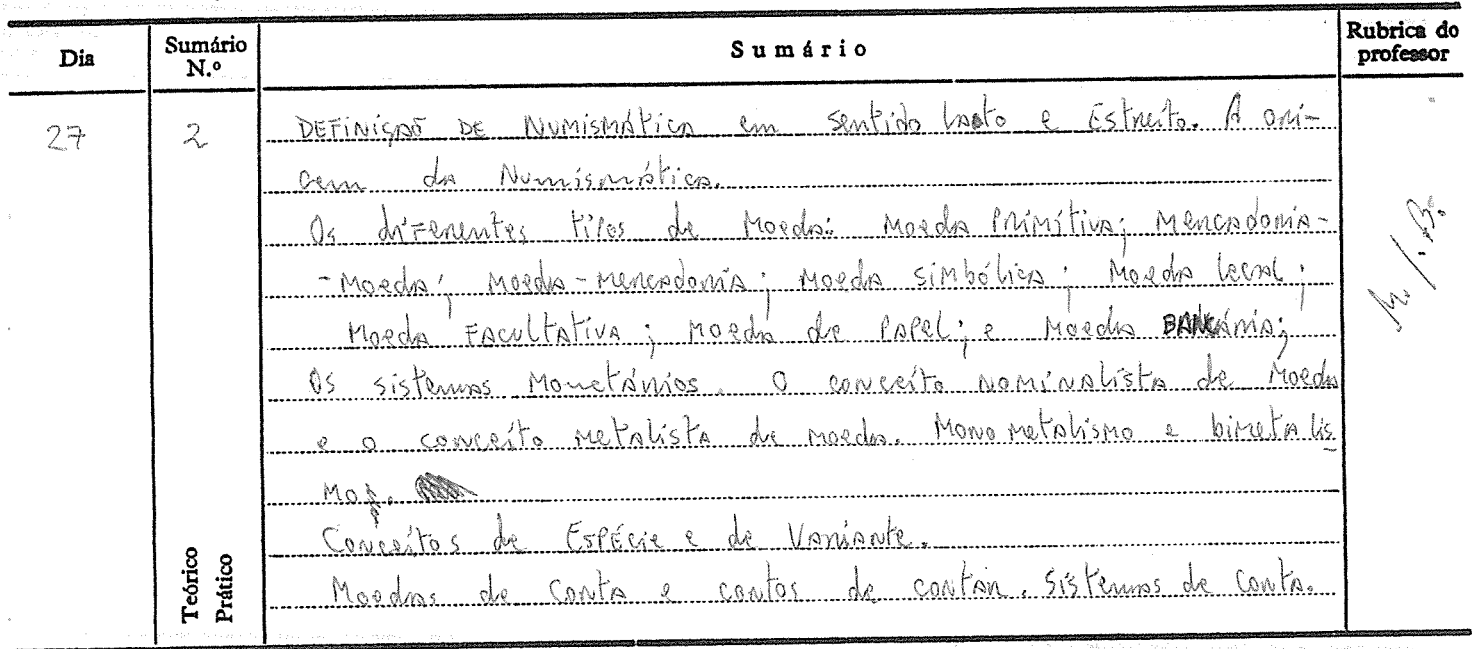 Dia Sumário N.º Sumário Rubrica do professor
27 2 DEFINIÇAÕ DE NUMISMÁTICA em sentido lato e Estreito. A ori-
gem da Numismática.
Os diferentes tipos de Moeda: Moeda Primítiva; Mercadoria-
-Moeda; Moeda-mercadoria; Moeda símbólica; Moeda legal;
Moeda Facultativa; Moeda de Papel; e Moeda BANCária;
Os sistemas Monetários. O conceito nominalista de Moeda
e o conceito metalista de moeda. Monometalismo e bimetalis
mo.
Conceitos de Espécie e de Variante.
Moedas de Conta e contos de contar. Sistemas de Conta.
Teórico
Prático